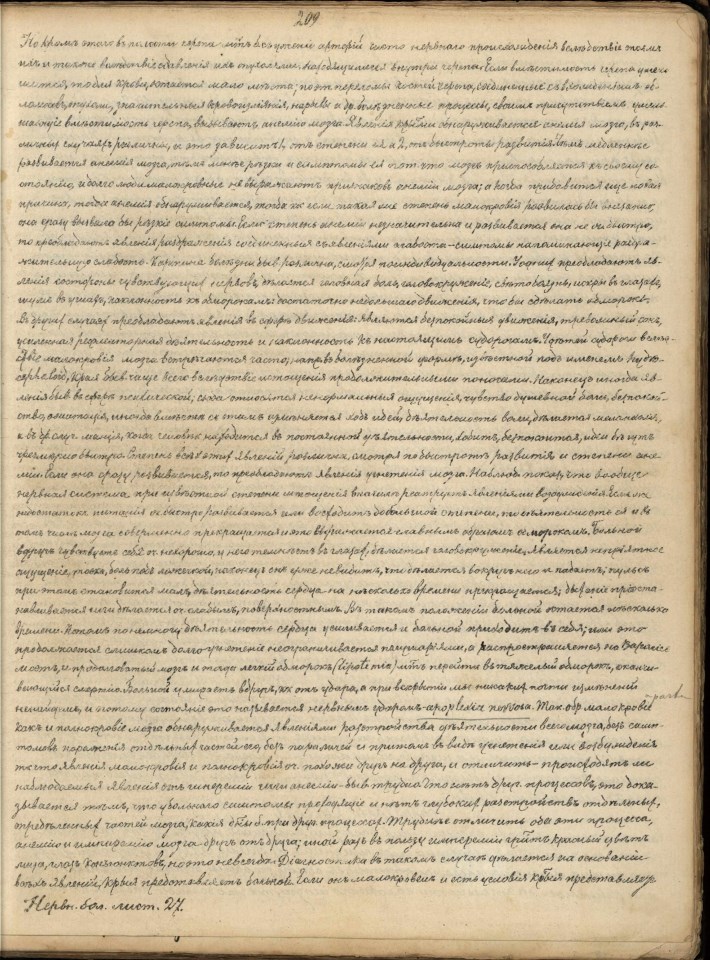 209
Но кромѣ этого въ полости черепа
их и также вслѣдствіе сдавленія ихъ опухолями, находящимися внутри черепа. Если вмѣстимость черепа умень
шается, то для крови остается мало мѣста; поэт. переломы костей черепа
ломковъ, опухоли, значительныя кровоизліянія, нарывы и др. болѣзненные процессы, своимъ присутствіемъ умень
шающіе вмѣстимость черепа, вызываютъ анемію мозга. Явленія которыми обнаруживается анемія мозга, въ раз
личныхъ случаяхъ различны, и это зависитъ 1, отъ степени ея и 2, отъ быстроты развитія. Чѣмъ медленнѣе
развивается анемія мозга, тѣмъ менѣе рѣзки и симптомы ея от того что мозгъ приспособляется къ своему со
стоянію, и долго люди малокровные не выражаютъ признаковъ анеміи мозга; а когда прибавится еще новая
причина, тогда анемія обнаруживается, тогда какъ если такая же степень малокровія развилась бы внезапно,
она сразу вызвала бы рѣзкіе симптомы. Если степень анеміи незначительна и развивается она не быстро,
то преобладаютъ явленія раздраженія соединенныя съ явленіями слабости - симптомы напоминающіе раздра
жительную слабость. Картина болѣзни быв. различна, смотря по индивидуальности. У однихъ преобладаютъ яв
ленія со стороны чувствующихъ нервовъ, дѣлается головная боль, головокруженіе, свѣтобоязнь, искры въ глазахъ,
шумъ въ ушахъ, наклонность къ обморокамъ; достаточно небольшаго движенія, что бы сдѣлать обморокъ.
Въ другихъ случаяхъ преобладаютъ явленія въ сферѣ движенія: являются безпокойныя движенія, тревожный сонъ,
усиленная рефлекторная дѣятельность и наклонность къ настоящимъ судорогамъ. У дѣтей судороги вслѣд
ствіе малокровія мозга встрѣчаются часто, напр. въ болѣзненной формѣ, извѣстной подъ именемъ Hydro
cephaloid, кот. быв. чаще всего вслѣдствіе истощенія продолжительными поносами. Наконецъ иногда яв
ленія быв. въ сферѣ психической, сюда относятся ненормальныя ощущенія, чувство душевной боли, безпокой
ство, ажитація, иногда вмѣстѣ съ тѣмъ измѣняется ходъ идей, дѣятельность воли, дѣлается меланхолія,
а въ др. случ. манія, когда человѣкъ находится въ постоянной дѣятельности, ходитъ, безпокоится, идеи бѣгутъ
чрезвычайно быстро. Степень всѣхъ этихъ явленій различна, смотря по быстротѣ развитія и степени ане
міи. Если она сразу развивается, то преобладаютъ явленія угнетенія мозга. Наблюд. показ., что вообще
нервная система при извѣстной степени истощенія вначалѣ реагируетъ явленіями возбужденія. Если же
недостатокъ питанія быстро развивается или восходитъ до большой степени, то дѣятельность ея и въ
томъ числѣ мозга совершенно прекращается и это выражается главнымъ образомъ обморокомъ. Больной
вдругъ чувствуетъ себя нехорошо, у него темнѣетъ въ глазахъ, дѣлается головокруженіе, является непріятное
ощущеніе, тоска, боль подъ ложечкой, наконецъ онъ уже не видитъ, что дѣлается вокругъ него и падаетъ; пульсъ
при этомъ становится малъ, дѣятельность сердца на нѣсколько времени прекращается; дыханіе пріоста
навливается или дѣлается оч. слабымъ, поверхностнымъ. Въ такомъ положеніи больной остается нѣсколько
времени. Потомъ понемногу дѣятельность сердца усиливается и больной приходитъ въ себя; или это
продолжается слишкомъ долго, угнетеніе не ограничивается полушаріями, а распространяется на Варолиевъ
мостъ, и продолговатый мозгъ и тогда легкій обморокъ (lipotemia) м. перейти въ тяжелый обморокъ, оканчи
вающійся смертію. Больной умираетъ вдругъ, какъ отъ удара, а при вскрытіи мы никакихъ почти измѣненій
не найдемъ, и потому состояніе это называется нервнымъ ударомъ - apoplexia nervosa. Так. обр. малокровіе
какъ и полнокровіе мозга обнаруживается явленіями разстройства дѣятельности всего мозга, безъ симп
томовъ пораженія отдѣльныхъ частей его, безъ параличей и притомъ въ видѣ угнетенія или возбужденія
то есть явленія малокровія и полнокровія оч. похожи другъ на друга, и отличить - происходятъ ли
наблюдаемыя явленія отъ гипереміи или анеміи - быв. трудно. Что нѣтъ друг. процессовъ, это дока
зывается тѣмъ, что у больнаго симптомы преходящіе и нѣтъ глубокихъ разстройствъ отдѣльныхъ,
опредѣленныхъ частей мозга, какія были бы при друг. процессахъ. Труднѣе отличить оба эти процесса,
анемію и гиперемію мозга другъ отъ друга; иной разъ въ пользу гипереміи говоритъ красный цвѣтъ
лица, глазъ конъюнктивъ, но это не всегда. Діагностика въ такомъ случаѣ дѣлается на основаніи
всѣхъ явленій, которыя представляетъ больной. Если онъ малокровенъ и есть условія которыя представляютъ
Нервн. бол. лист. 27.